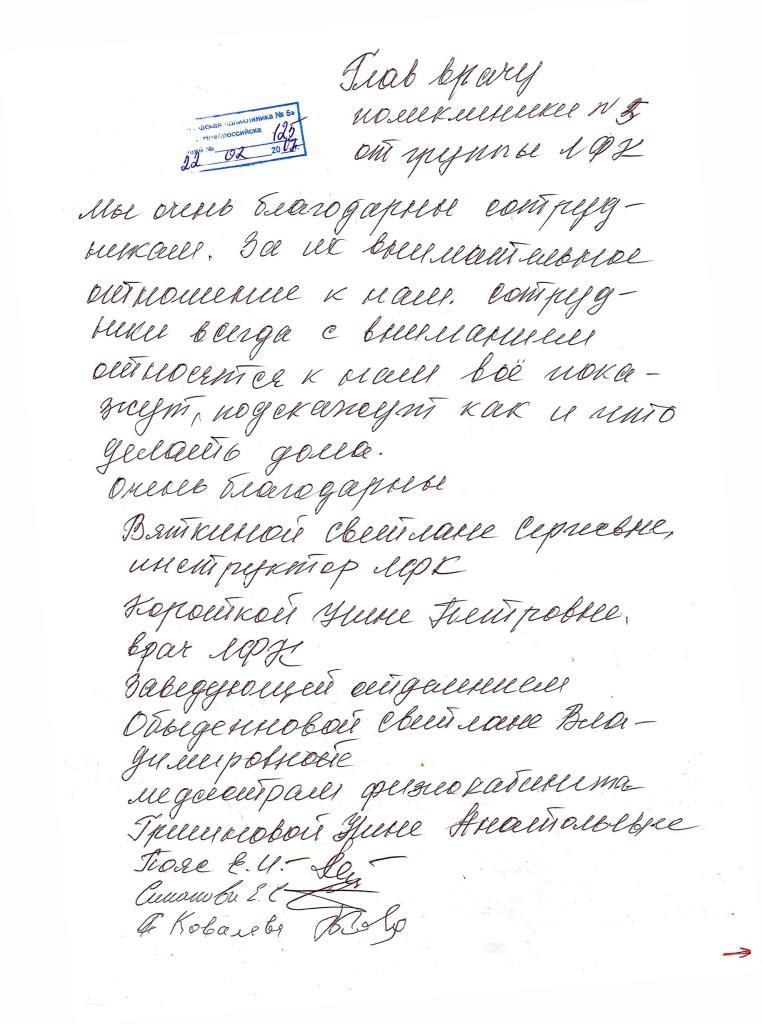 Глав врачу
поликлиники № 5
от группы ЛФК
дская поликлиника № 5»
Новороссийска
125
22 02 2007
Мы очень благодарны сотруд-
никам. За их внимательное
отношение к нам. Сотруд-
ники всегда с вниманием
относятся к нам всё пока-
жут, подскажут как и что
делать дома.
Очень благодарны
Вяткиной Светлане Сергеевне,
инструктор ЛФК
Короткой Нине Петровне,
врач ЛФК
Заведующей отделением
Обыденновой Светлане Вла-
димировной
медсёстрам физиокабинета
Нине Анатольевне
Пояс Е.И.
Е.С
Ковалева